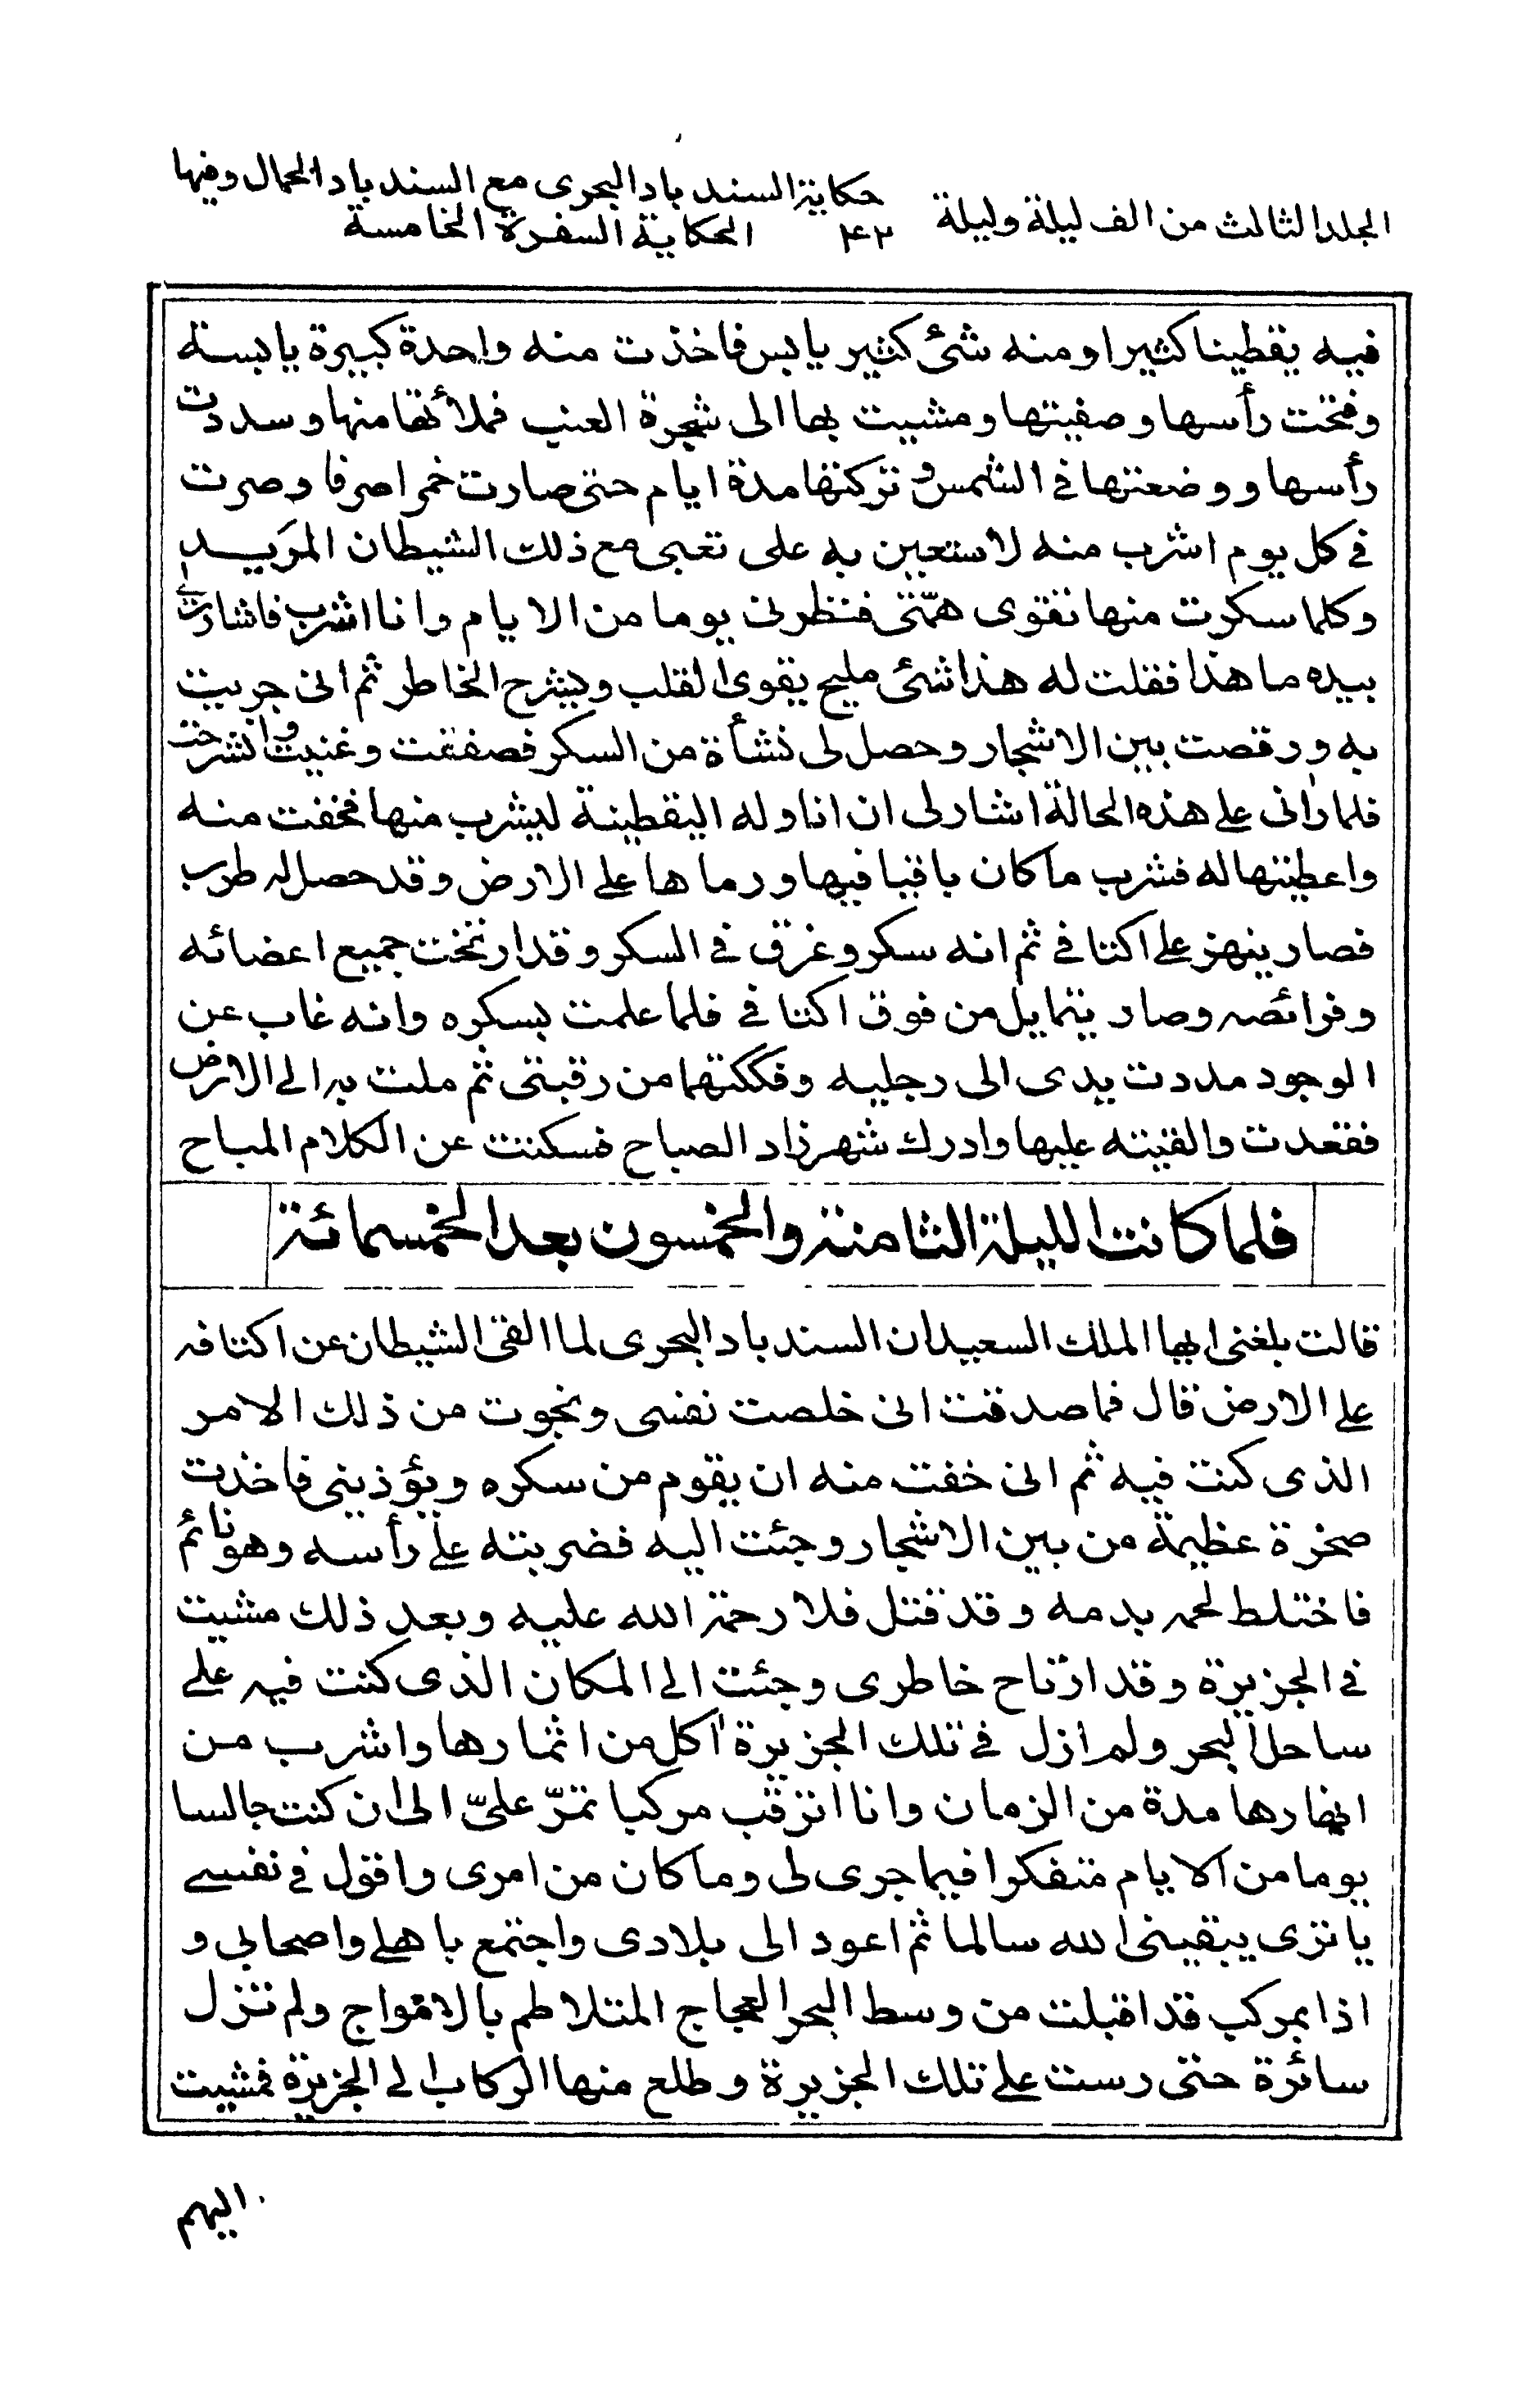 المجلد الثالث من الف ليلة وليلة ٤٢ حكاية السندباد البحرى مع السندباد الحمال وفيها
الحكاية السفرة الخامسة
فيه يقطينا كثيرا ومنه شئ كثير يابس فاخذت منه واحدة كبيرة يابسة
وفتحت رأسها وصفيتها ومشيت بها الى شجرة العنب فملأتها منها وسددت
رأسها ووضعتها فى الشمس وتركتها مدة ايام حتى صارت خمرا صرفا وصرت
فى كل يوم اشرب منه لاستعين به على تعبى مع ذلك الشيطان المريد
وكلما سكرت منها تقوى همّتى فنظرنى يوما من الايام وانا اشرب فاشار لى
بيده ما هذا فقلت له هذا شئ مليح يقوى القلب ويشرح الخاطر ثم انى جريت
به ورقصت بين الاشجار وحصل لى نشأة من السكر فصفقت وغنيت وانشرحت
فلما رانى على هذه الحالة اشار لى ان اناوله اليقطينة ليشرب منها فخفت منه
واعطيتها له فشرب ما كان باقيا فيها ورماها على الارض وقد حصل له طرب
فصار ينهز على اكتافى ثم انه سكر وغرق فى السكر وقد ارتخت جميع اعضائه
وفرائصه وصار يتمايل من فوق اكتافى فلما علمت بسكره وانه غاب عن
الوجود مددت يدى الى رجليه وفككتهما من رقبتى ثم ملت به الى الارض
فقعدت والقيته عليها وادرك شهرزاد الصباح فسكتت عن الكلام المباح
فلما كانت الليلة الثامنة والخمسون بعد الخمسمائة
قالت بلغنى ايها الملك السعيد ان السندباد البحرى لما القى الشيطان عن اكتافه
على الارض قال فما صدقت انى خلصت نفسى ونجوت من ذلك الامر
الذى كنت فيه ثم انى خفت منه ان يقوم من سكره ويؤذينى فاخذت
صخرة عظيمة من بين الاشجار وجئت اليه فضربته على رأسه وهو نائم
فاختلط لحمه بدمه وقد قتل فلا رحمة الله عليه وبعد ذلك مشيت
فى الجزيرة وقد ارتاح خاطرى وجئت الى المكان الذى كنت فيه على
ساحل البحر ولم ازل فى تلك الجزيرة اٰكل من اثمارها واشرب من
انهارها مدة من الزمان وانا اترقب مركبا تمرّ علىّ الى ان كنت جالسا
يوما من الايام متفكرا فيما جرى لى وما كان من امرى واقول فى نفسے
يا ترى يبقينى الله سالما ثم اعود الى بلادى واجتمع باهلى واصحابى و
اذا بمركب قد اقبلت من وسط البحر العجاج المتلاطم بالامواج ولم تزل
سائرة حتى رست على تلك الجزيرة وطلع منها الركاب الى الجزيرة فمشيت
اليهم